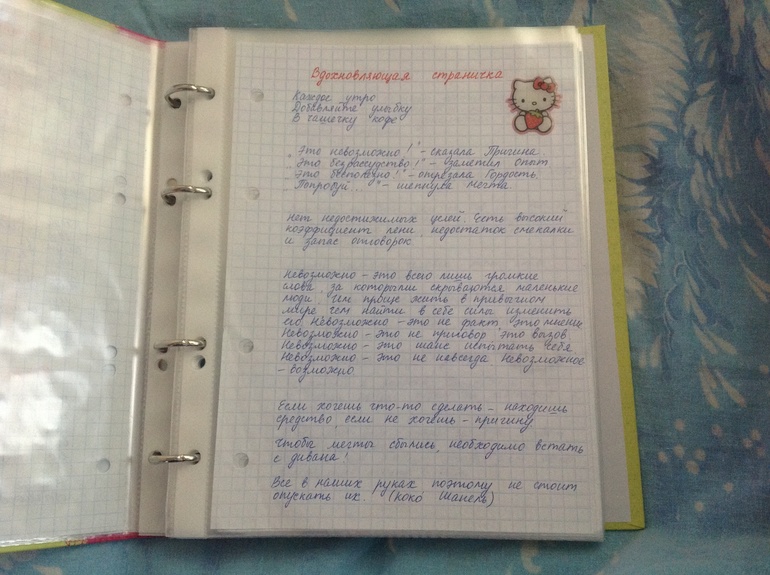 Вдохновляющая страничка
Каждое утро
Добавляйте улыбку
В чашечку кофе
„Это невозможно!" - сказала Причина.
„Это безрассудство!" - заметил Опыт
„Это бесполезно!" - отрезала Гордость.
„Попробуй..." - шепнула Мечта.
Нет недостижимых целей. Есть высокий
коэффициент лени, недостаток смекалки
и запас отговорок.
Невозможно - это всего лишь громкие
слова, за которыми скрываются маленькие
люди. Им проще жить в привычном
мире, чем найти в себе силы изменить
его. Невозможно - это не факт. Это мнение.
Невозможно - это не приговор. Это вызов.
Невозможно - это шанс испытать себя.
Невозможно - это не навсегда. Невозможное
- возможно.
Если хочешь что-то сделать - находишь
средство, если не хочешь - причину
Чтобы мечты сбылись, необходимо встать
с дивана!
Все в наших руках, поэтому не стоит
опускать их. (Коко Шанель)